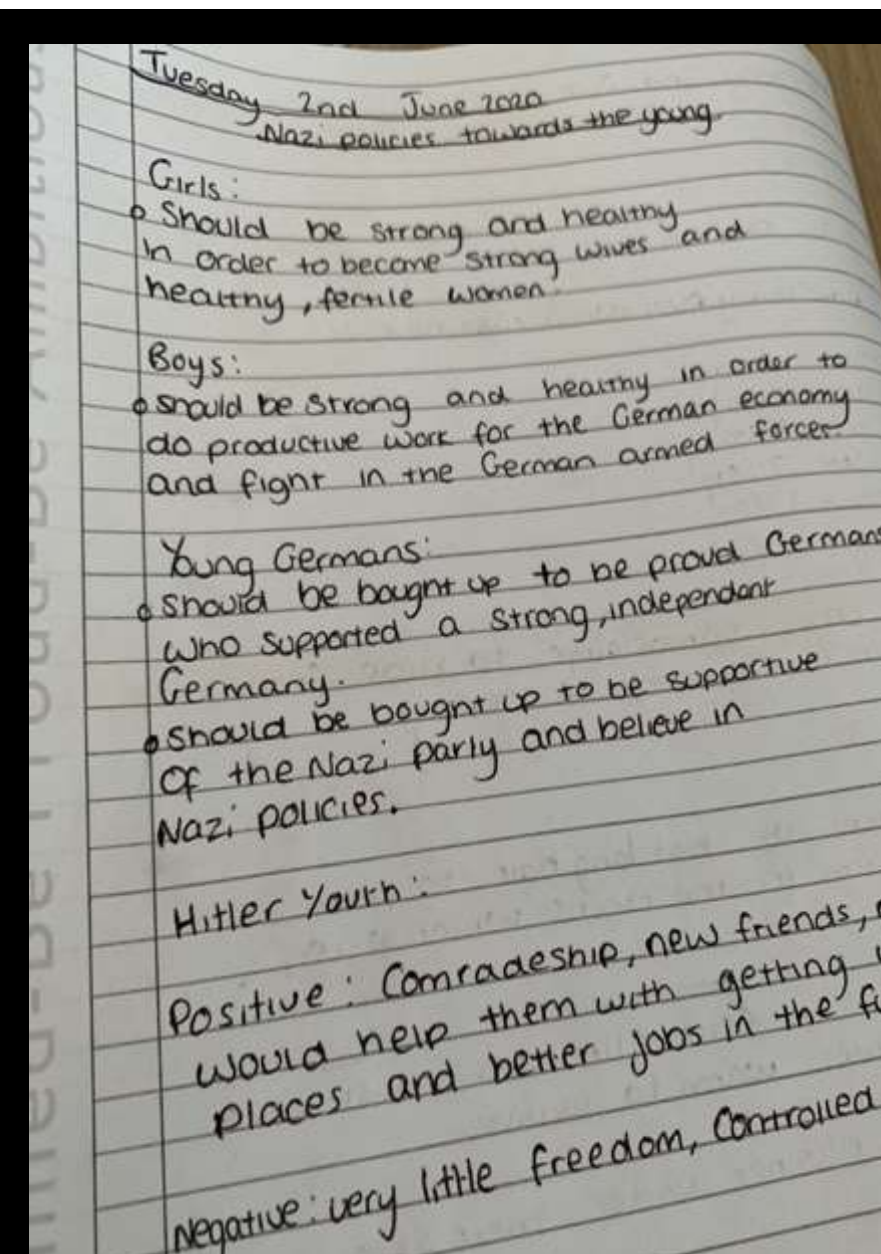 Tuesday 2nd June 2020
Nazi policies towards the young
Girls:
Should be strong and healthy
in order to become strong wives and
healthy, fertile women.
Boys:
should be strong and healthy in order to
do productive work for the German economy
and fight in the German armed forces.
Young Germans:
should be bought up to be proud Germans
who supported a strong, independant
Germany.
should be bought up to be supportive
of the Nazi party and believe in
Nazi policies.
Hitler Youth:
Positive: Comradeship, new friends,
would help them with getting
places and better jobs in the
Negative: very little freedom, controlled